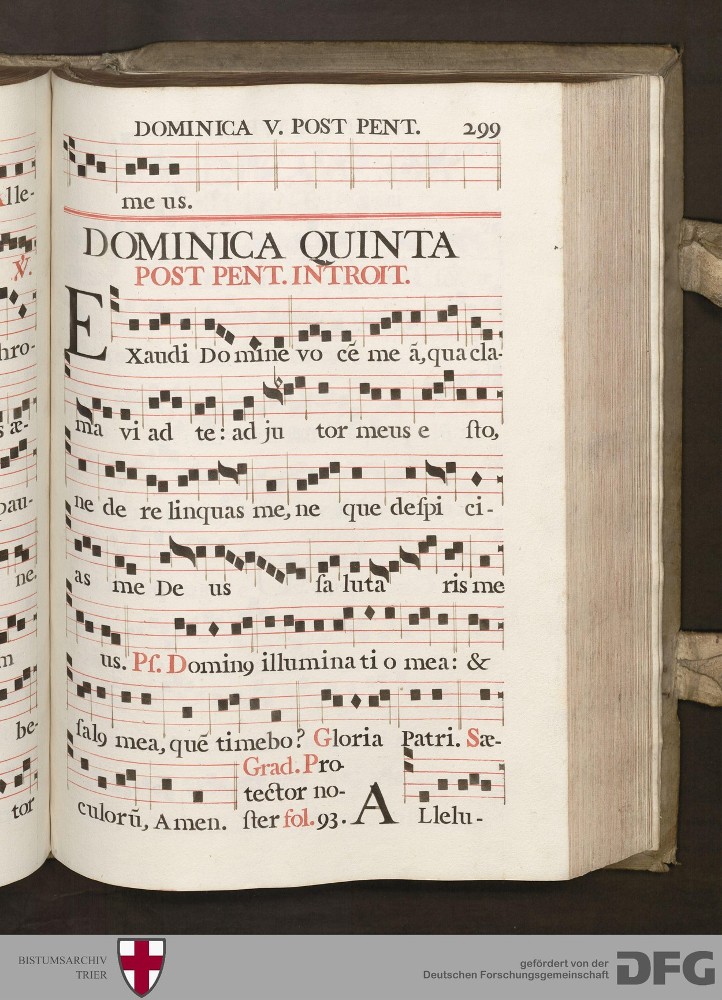 DOMINICA V. POST PENT. 299
me us.
DOMINICA QUINTA
POST PENT. INTROIT.
EXaudi Domine vo cē me ā, qua cla-
ma vi ad te: ad ju tor meus e ſto,
ne de re linquas me, ne que deſpi ci-
as me De us ſa luta ris me
us. Pſ. Dominꝰ illumina ti o mea: &
ſalꝰ mea, quē timebo? Gloria Patri. Sæ-
culorū, Amen.
Grad. Pro-
tector no-
ſter fol. 93.
ALlelu-
lle-
℣.
hro-
s æ-
pau-
ne.
m
be-
tor
BISTUMSARCHIV
TRIER
gefördert von der
Deutschen Forschungsgemeinschaft
DFG